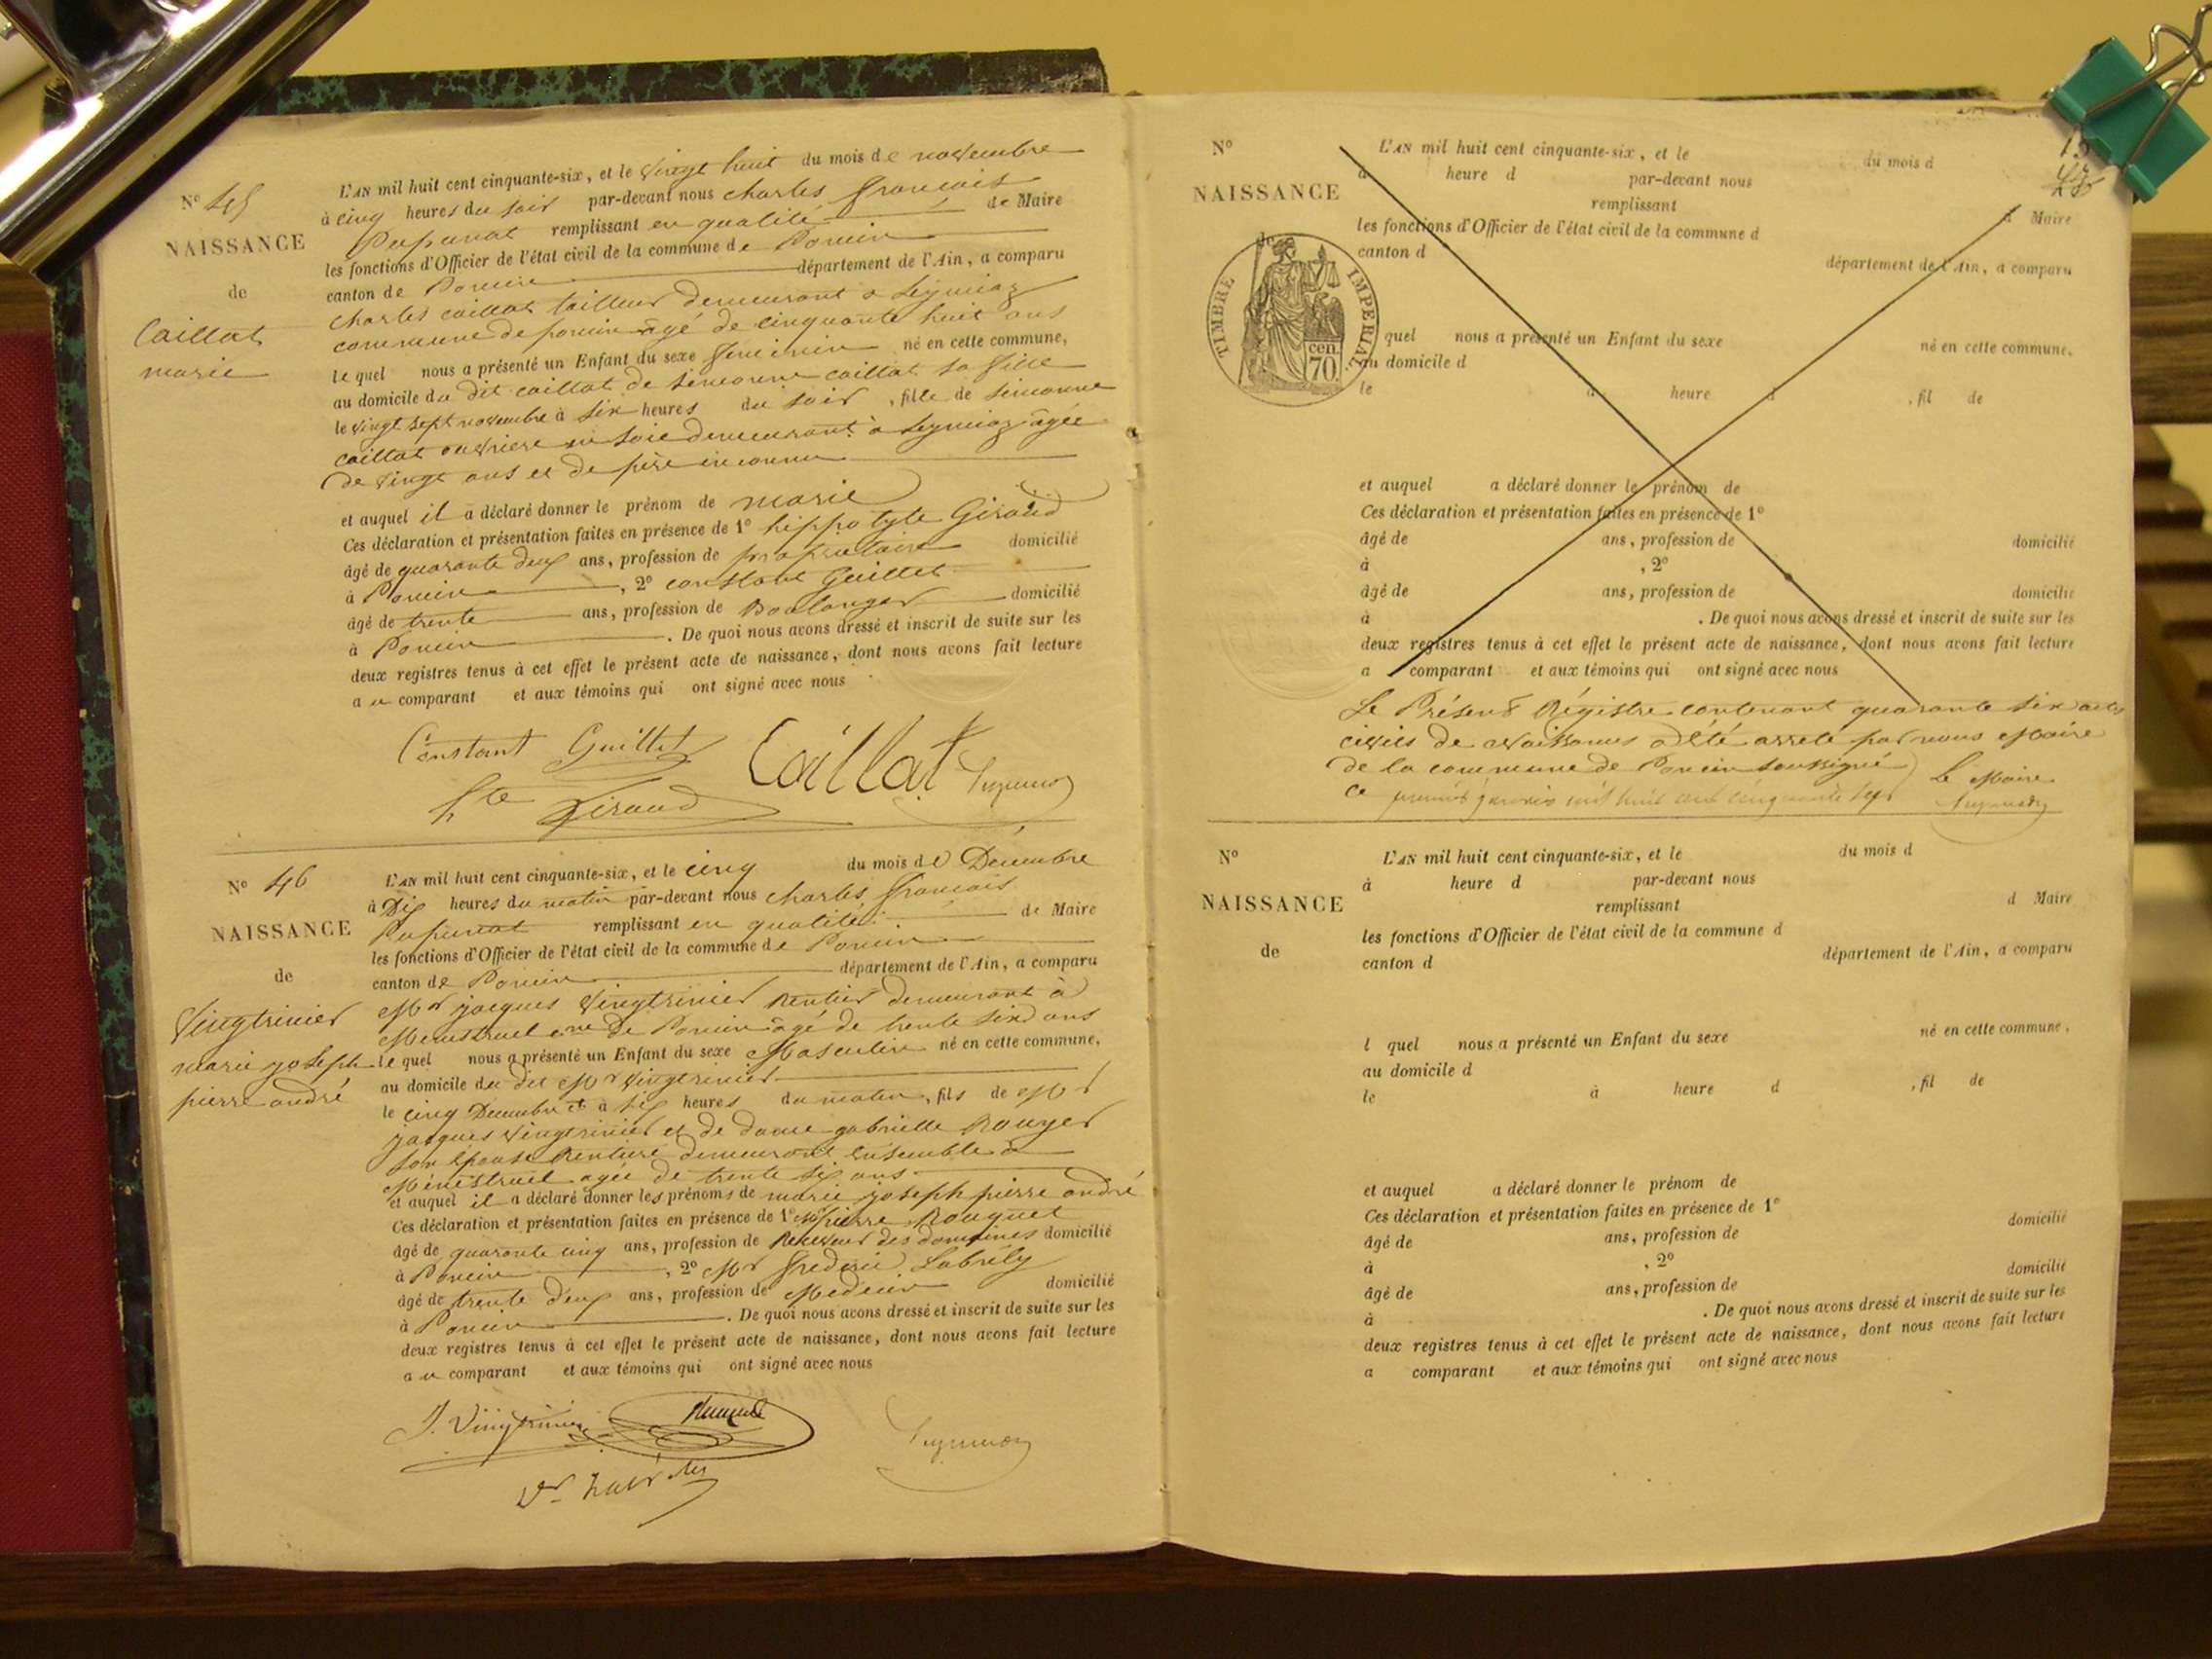 N° 45
NAISSANCE
de
Caillat
marie
L'AN mil huit cent cinquante-six, et le vingt huit du mois de novembre
à cinq heures du soir par-devant nous charles françois
remplissant en qualité de Maire
les fonctions d'Officier de l'état civil de la commune de Poncin
canton de Poncin département de l'Ain, a comparu
charles caillat tailleur demeurant a Leymiaz
commune de poncin âgé de cinquante huit ans
le quel nous a présenté un Enfant du sexe feminin né en cette commune,
au domicile du dit caillat de simonne caillat sa fille
le vingt sept novembre à six heures du soir, fille de simonne
caillat ouvriere en soie demeurant a Leymiaz âgée
de vingt ans et de père inconnu
et auquel il a déclaré donner le prénom de marie
Ces déclaration et présentation faites en présence de 1° hippolyte Giraud
âgé de quarante deux ans, profession de propriétaire domicilié
à Poncin, 2° constant Guillet
âgé de trente ans, profession de Boulanger domicilié
à Poncin. De quoi nous avons dressé et inscrit de suite sur les
deux registres tenus à cet effet le présent acte de naissance, dont nous avons fait lecture
au comparant et aux témoins qui ont signé avec nous
Constant Guillet Caillat
hte Giraud
N° 46
NAISSANCE
de
Vingtrinier
marie joseph
pierre andré
L'AN mil huit cent cinquante-six, et le cinq du mois de Décembre
à Dix heures du matin par-devant nous charles françois
remplissant en qualité de Maire
les fonctions d'Officier de l'état civil de la commune de Poncin
canton de Poncin département de l'Ain, a comparu
Mr jacques Vingtrinier Rentier demeurant à
Menestruel cne de Poncin âgé de trente six ans
le quel nous a présenté un Enfant du sexe Masculin né en cette commune,
au domicile du dit Mr Vingtrinier
le cinq Décembre et à six heures du matin, fils de Mr
jacques Vingtrinier et de dame gabrielle Rouyer
son épouse Rentière demeurant ensemble à
Ménéstruel agée de trente six ans
et auquel il a déclaré donner les prénoms de marie joseph pierre andré
Ces déclaration et présentation faites en présence de 1° Mr pierre Rouquet
âgé de quarante cinq ans, profession de Receveur des domaines domicilié
à Poncin, 2° Mr frederic Labrély
âgé de trente deux ans, profession de Medecin domicilié
à Poncin. De quoi nous avons dressé et inscrit de suite sur les
deux registres tenus à cet effet le présent acte de naissance, dont nous avons fait lecture
au comparant et aux témoins qui ont signé avec nous
J. Vingtrinier
N°
NAISSANCE
de
TIMBRE IMPERIAL
70 cen
L'AN mil huit cent cinquante-six, et le du mois d
à heure d par-devant nous
remplissant d Maire
les fonctions d'Officier de l'état civil de la commune d
canton d département de l'Ain, a comparu
quel nous a présenté un Enfant du sexe né en cette commune,
au domicile d
le à heure d, fil de
et auquel a déclaré donner le prénom de
Ces déclaration et présentation faites en présence de 1°
âgé de ans, profession de domicilié
à, 2°
âgé de ans, profession de domicilié
à. De quoi nous avons dressé et inscrit de suite sur les
deux registres tenus à cet effet le présent acte de naissance, dont nous avons fait lecture
a comparant et aux témoins qui ont signé avec nous
Le Présent Régistre contenant quarante six actes
civils de Naissances a été arreté par nous Maire
de la commune de Poncin soussigné Le Maire
ce premier janvier mil huit cent cinquante sept
N°
NAISSANCE
de
L'AN mil huit cent cinquante-six, et le du mois d
à heure d par-devant nous
remplissant d Maire
les fonctions d'Officier de l'état civil de la commune d
canton d département de l'Ain, a comparu
l quel nous a présenté un Enfant du sexe né en cette commune,
au domicile d
le à heure d, fil de
et auquel a déclaré donner le prénom de
Ces déclaration et présentation faites en présence de 1°
âgé de ans, profession de domicilié
à, 2°
âgé de ans, profession de domicilié
à. De quoi nous avons dressé et inscrit de suite sur les
deux registres tenus à cet effet le présent acte de naissance, dont nous avons fait lecture
a comparant et aux témoins qui ont signé avec nous